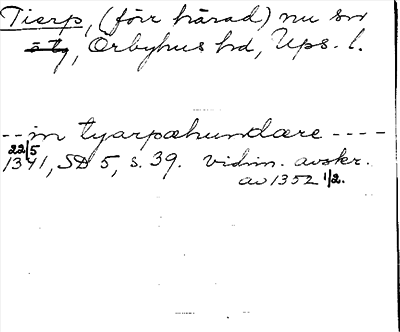 Tierp, (förr härad) nu sn
Örbyhus hd, Ups. l.
-- in tyarpæhundære ----
22/5
1341, SD 5, s. 39. vidim. avskr.
av 1352 1/2.